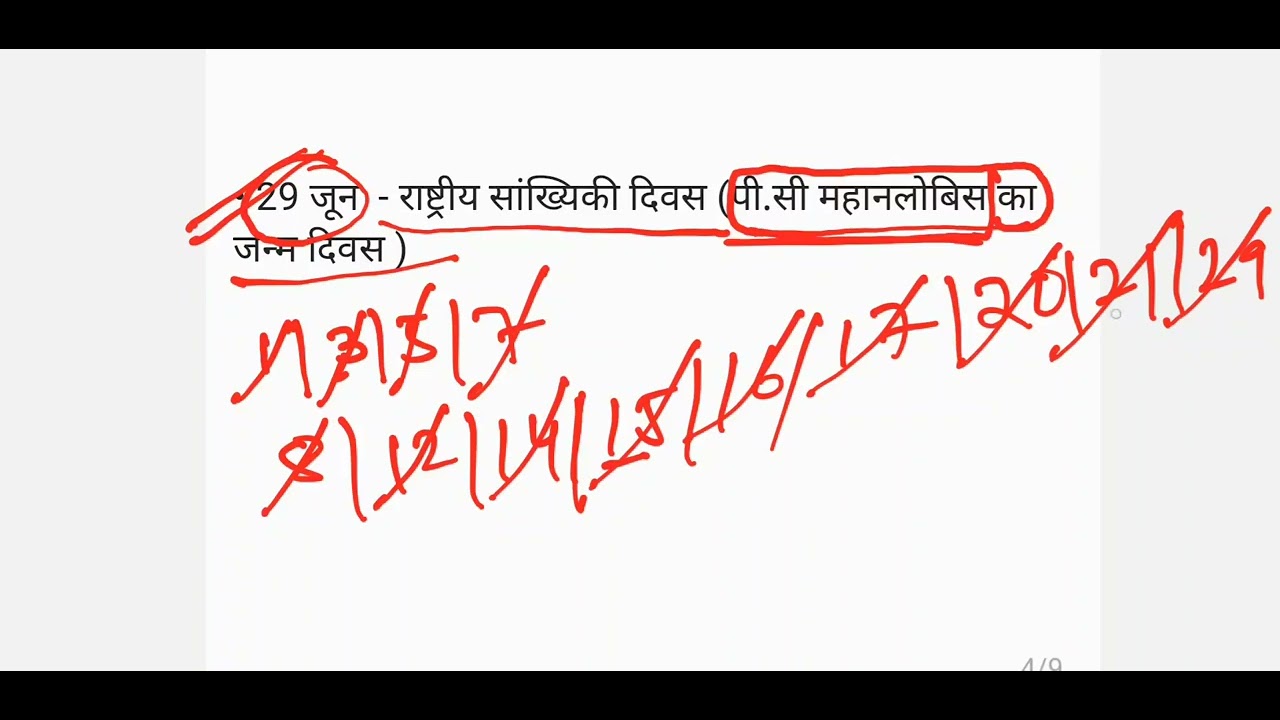 - 29 जून - राष्ट्रीय सांख्यिकी दिवस (पी.सी महानलोबिस का
जन्म दिवस )
1 | 3 | 5 | 7
8 | 12 | 14 | 15 | 16 | 17 | 20 | 21 | 29
4/9